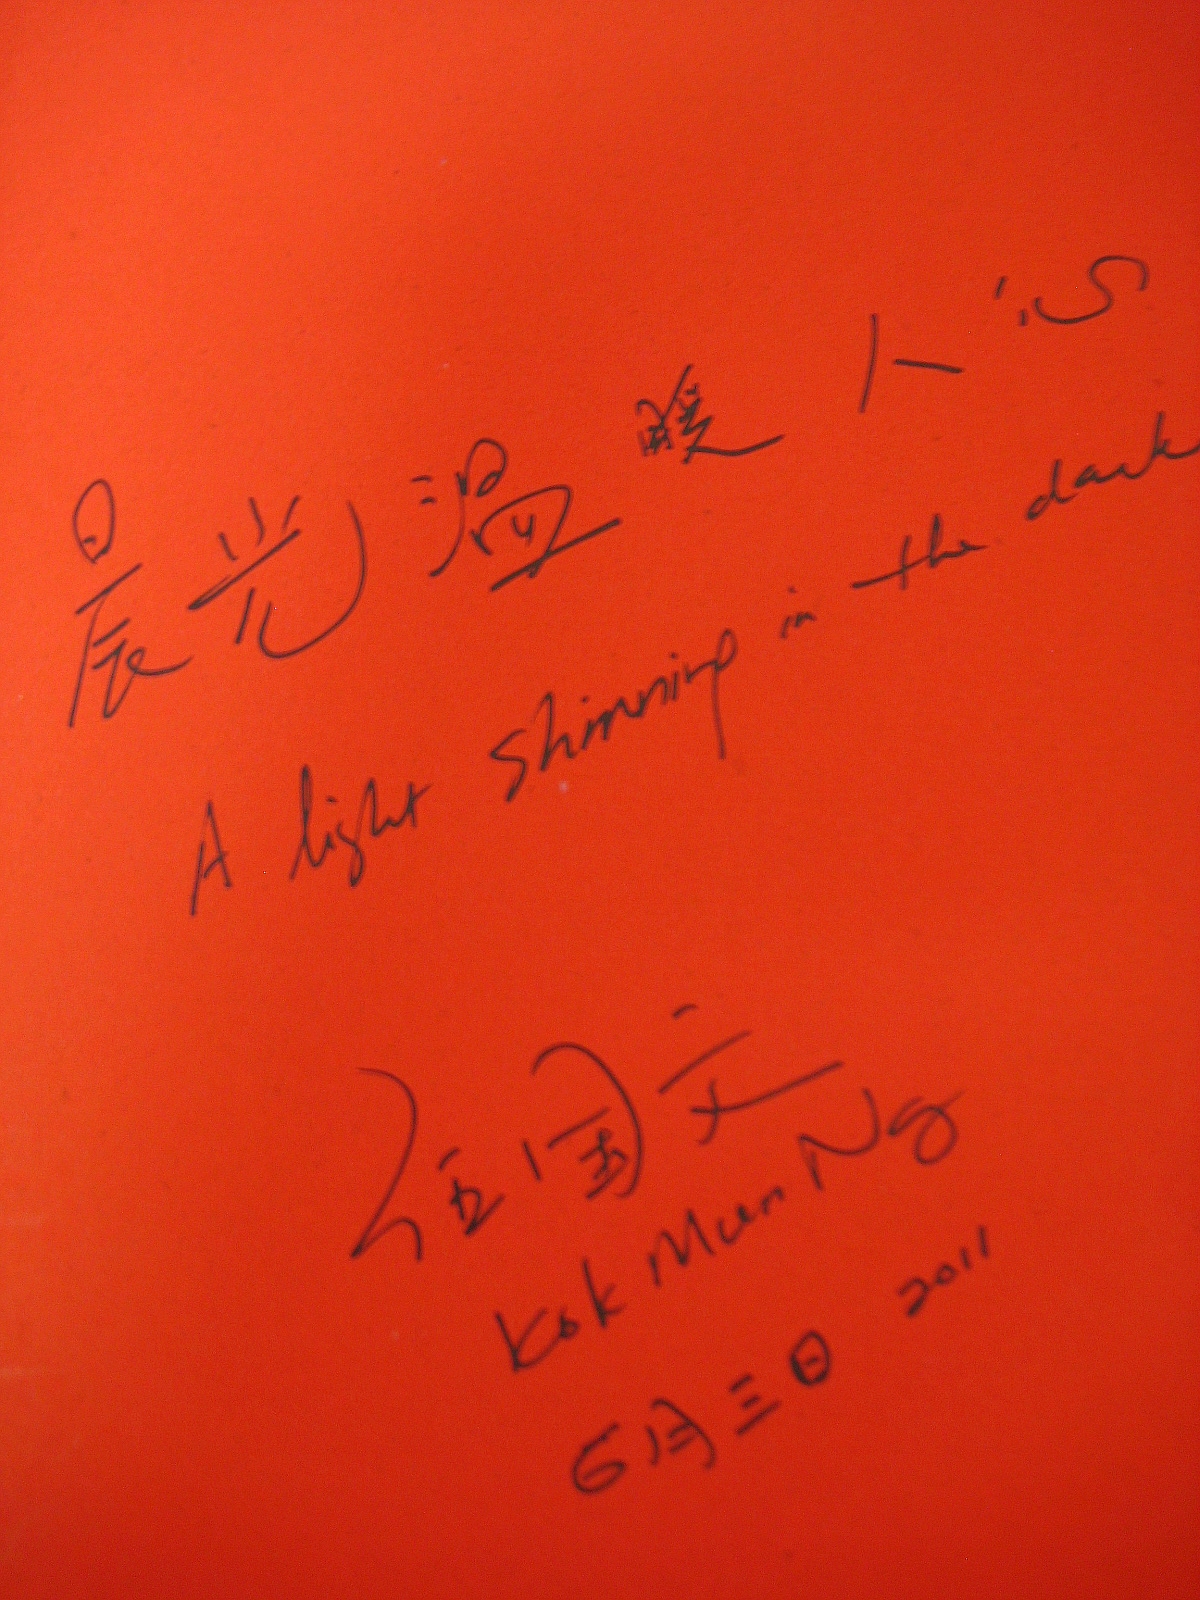 晨光温暖人心
A light shinning in the dark
伍国文
Kok Mun Ng
6月三日 2011